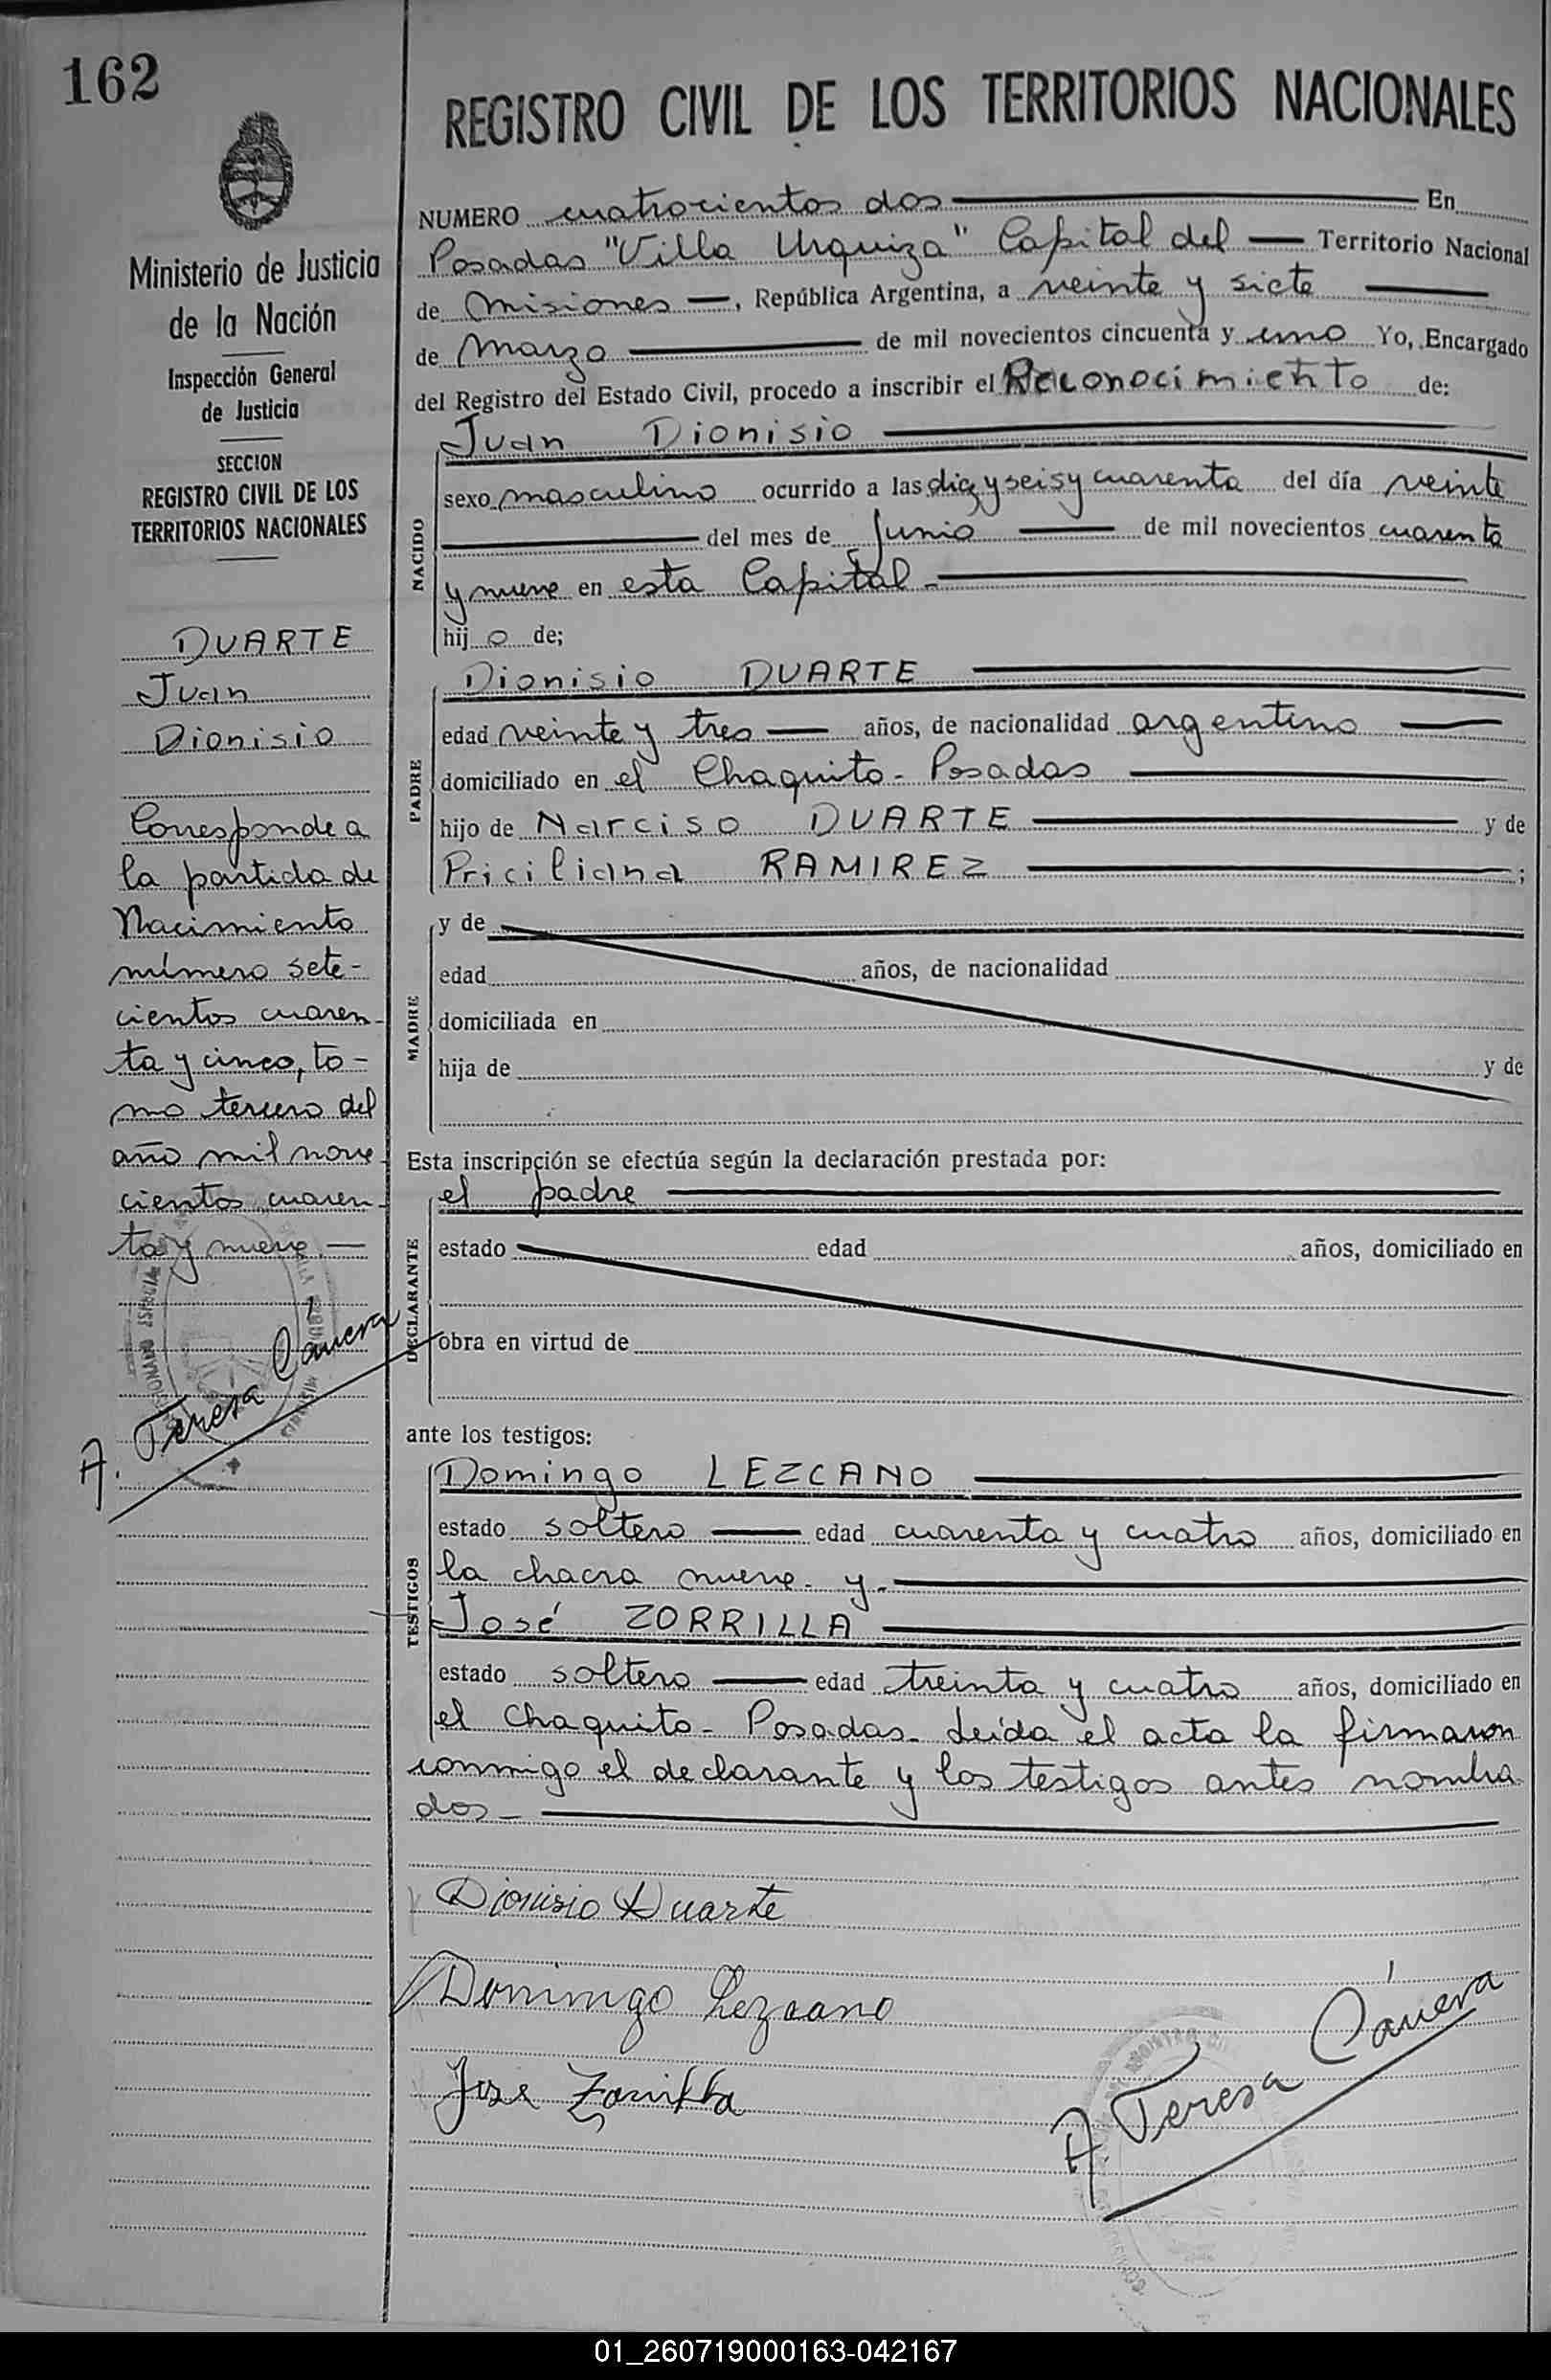 162
REGISTRO CIVIL DE LOS TERRITORIOS NACIONALES
Ministerio de Justicia
de la Nación
Inspección General
de Justicia
SECCION
REGISTRO CIVIL DE LOS
TERRITORIOS NACIONALES
DUARTE
Juan
Dionisio
Corresponde a
la partida de
Nacimiento
número sete-
cientos cuaren-
ta y cinco, to-
mo tercero del
año mil nove-
cientos cuaren-
ta y nueve.—
A. Teresa
NUMERO cuatrocientos dos En
Posadas "Villa Urquiza" Capital del Territorio Nacional
de Misiones, República Argentina, a veinte y siete
de Marzo de mil novecientos cincuenta y uno Yo, Encargado
del Registro del Estado Civil, procedo a inscribir el Reconocimiento de:
Juan Dionisio
NACIDO
sexo masculino ocurrido a las diez y seis y cuarenta del día veinte
del mes de Junio de mil novecientos cuarenta
y nueve en esta Capital.-
hijo de;
PADRE
Dionisio DUARTE
edad veinte y tres años, de nacionalidad argentino
domiciliado en el Chaquito- Posadas
hijo de Narciso DUARTE y de
Priciliana RAMIREZ ;
MADRE
y de
edad años, de nacionalidad
domiciliada en
hija de y de
Esta inscripción se efectúa según la declaración prestada por:
el padre
DECLARANTE
estado edad años, domiciliado en
obra en virtud de
ante los testigos:
TESTIGOS
Domingo LEZCANO
estado soltero edad cuarenta y cuatro años, domiciliado en
la chacra nueve. y.
José ZORRILLA
estado soltero edad treinta y cuatro años, domiciliado en
el Chaquito- Posadas. Leída el acta la firmaron
conmigo el declarante y los testigos antes nombra-
dos-
Dionisio Duarte
Domingo Lezcano
José Zorrilla
A. Teresa
01_260719000163-042167